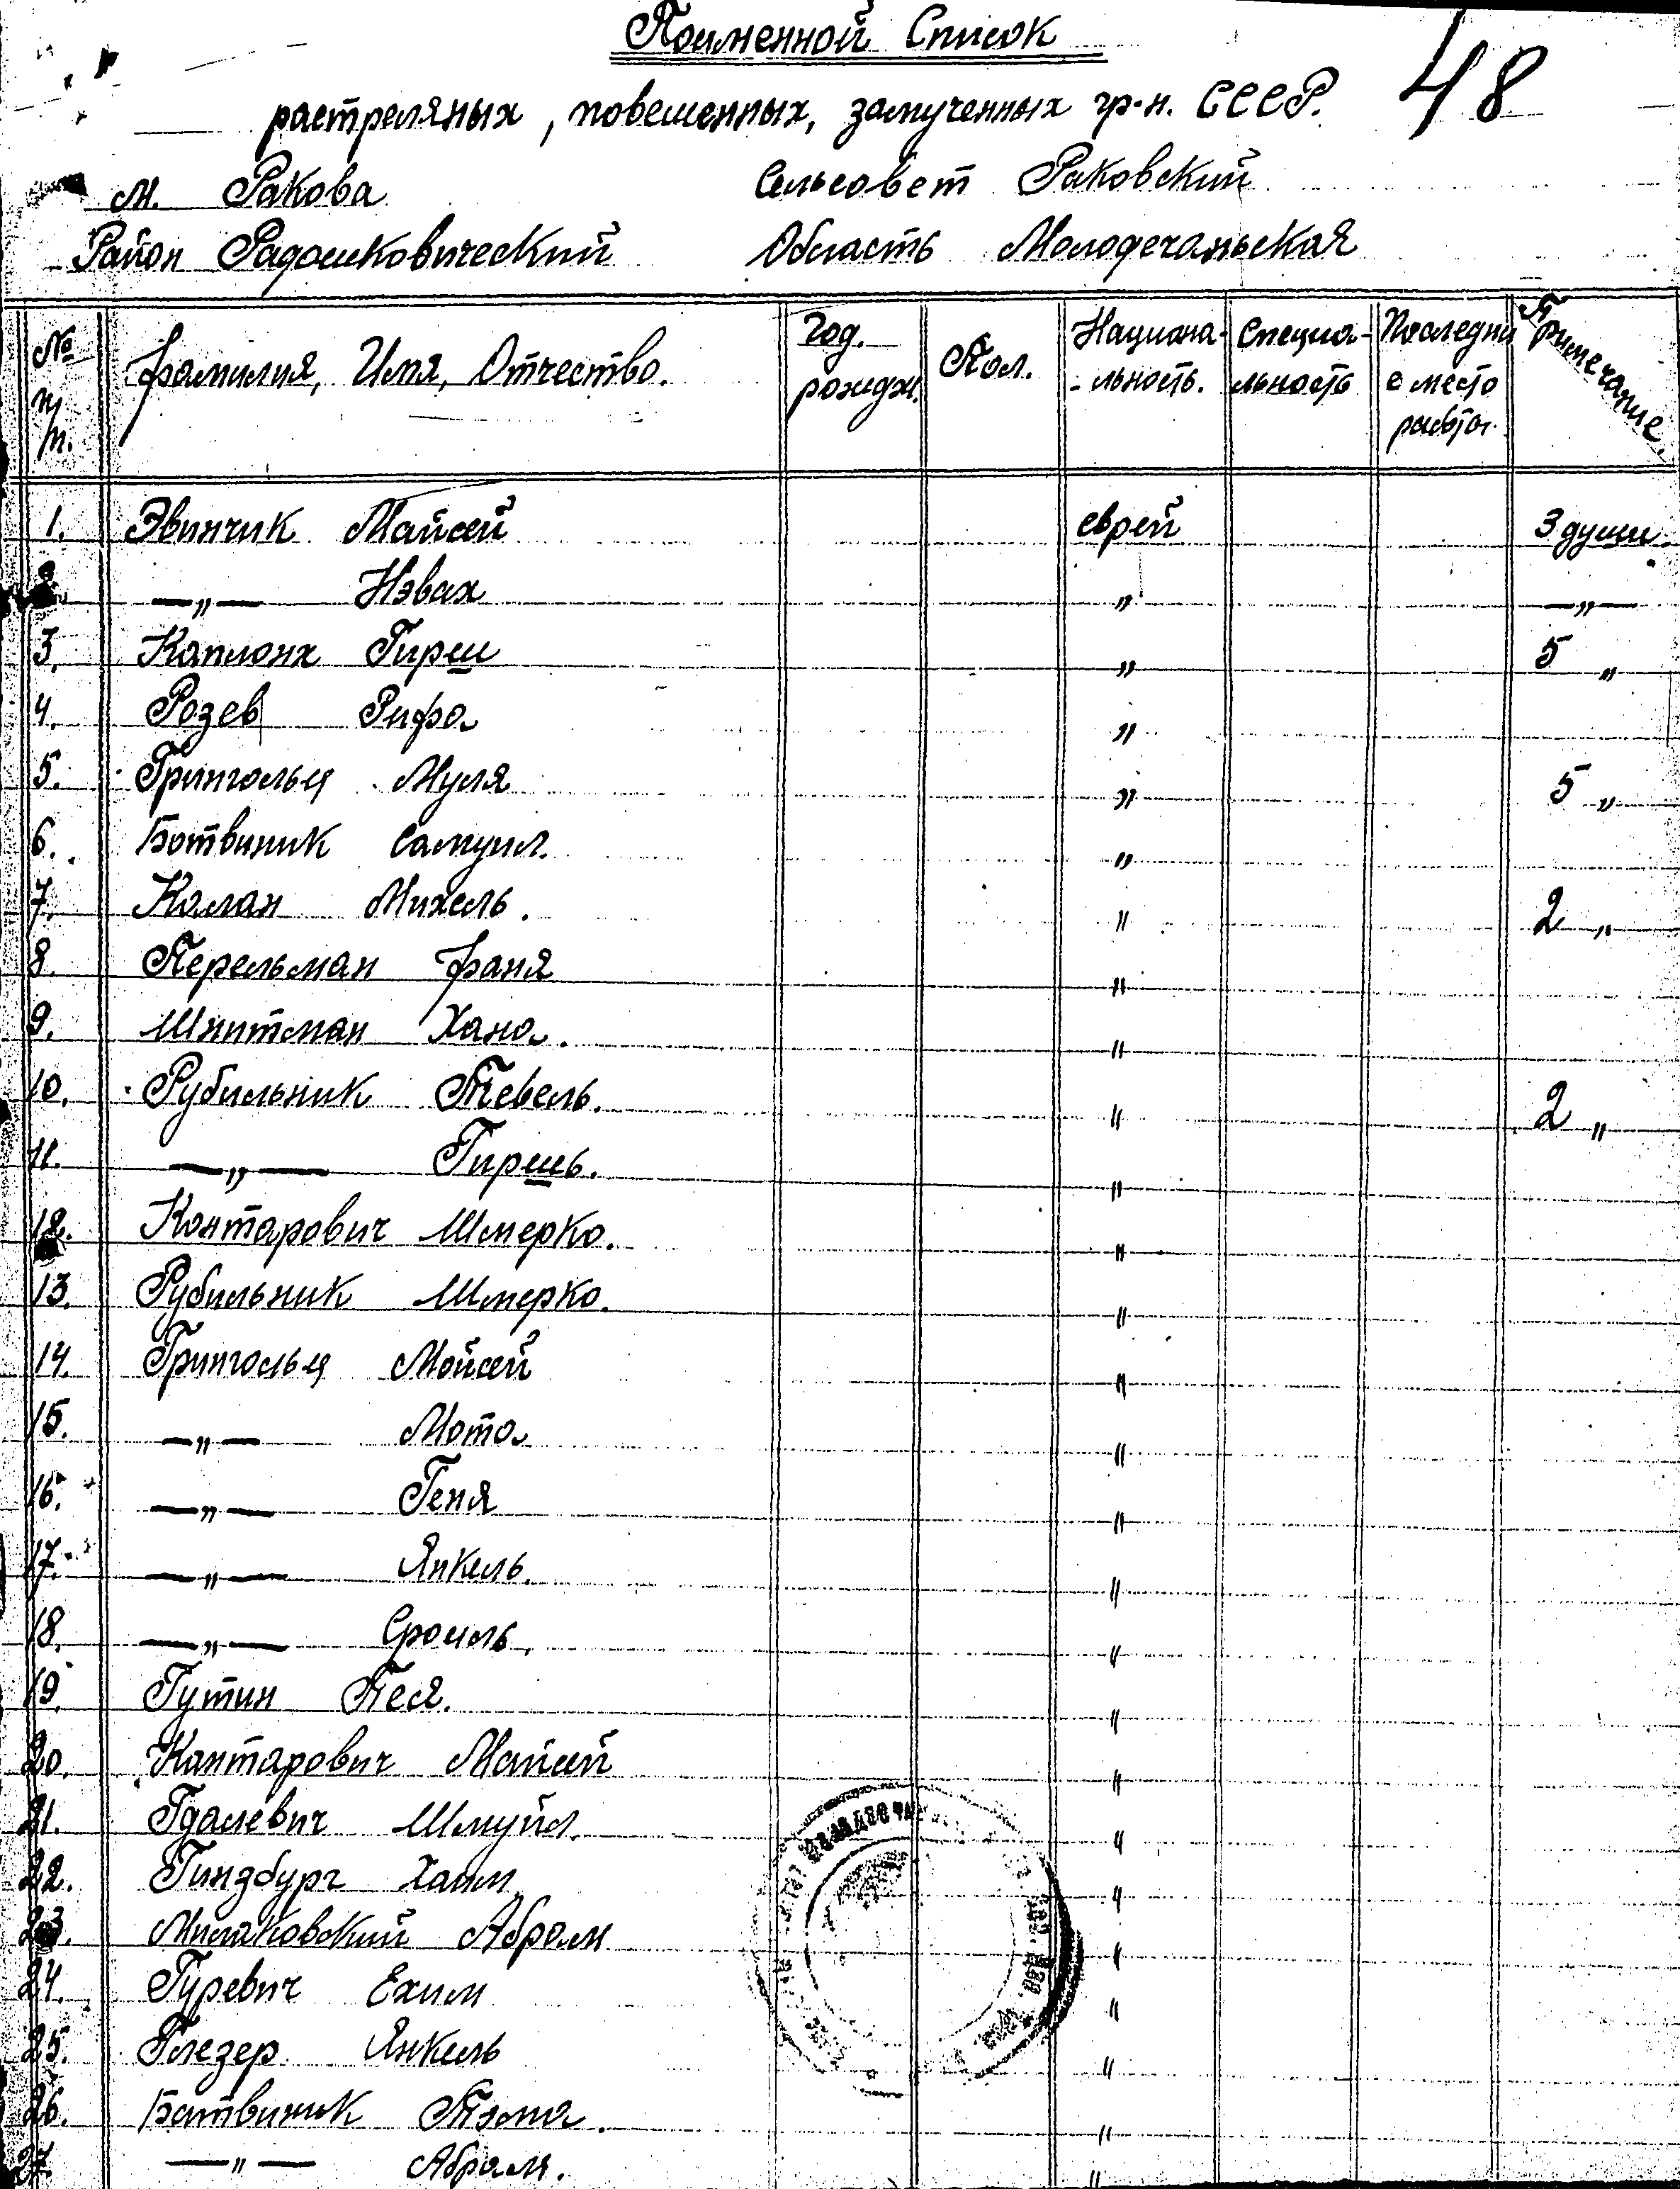 Поименной Список
48
растреляных, повешенных, замученных гр-н. СССР.
м. Ракова Сельсовет Раковский
Район Радошковический Область Молодечаньская
№ п/п. Фамилия, Имя, Отчество. Год. рожден. Пол. Национа-льность. Специа-льность Последни е место работы Примечание.
1. Эвинчик Майсей еврей 3 души.
2. —„— Нэвах „ —„—
3. Каплонх Гирш „ 5 „
4. Розев Рифа „
5. Грингольц Муля „ 5 „
6. Ботвиник Самуил. „
7. Калан Михель. „ 2 „
8. Перельман Фаня „
9. Шнитман Хана. „
10. Рубильник Тевель. „ 2 „
11. —„— Гиршь. „
12. Контарович Шмерко. „
13. Рубильник Шмерко. „
14. Грингольц Мойсей „
15. —„— Мота „
16. —„— Геня „
17. —„— Янкель. „
18. —„— Сроиль. „
19. Гутин Песя. „
20. Кантарович Майсей „
21. Гдалевич Шмуйл. „
22. Гинзбург Хаим „
23. Милаковский Абрам „
24. Гуревич Ехим „
25. Глезер Янкель „
26. Батвиник Тэма. „
27. —„— Абрам. „